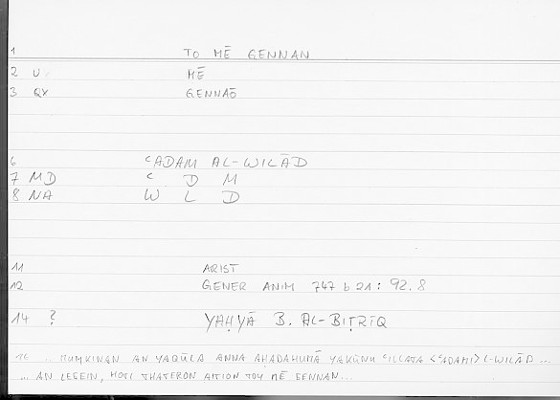 1 TO MĒ GENNAN
2 U MĒ
3 QX GENNAŌ
6 ʿADAM AL-WILĀD
7 MD ʿ D M
8 NA W L D
11 ARIST
12 GENER ANIM 747 b 21 : 92.8
14 ? YAḤYĀ B. AL-BIṬRĪQ
16 .. MUMKINAN AN YAQŪLA ANNA AḤADAHUMĀ YAKŪNU ʿILLATA <ʿADAMI> L-WILĀD ...
... AN LEGEIN, HOTI THATERON AITION TOY MĒ GENNAN...